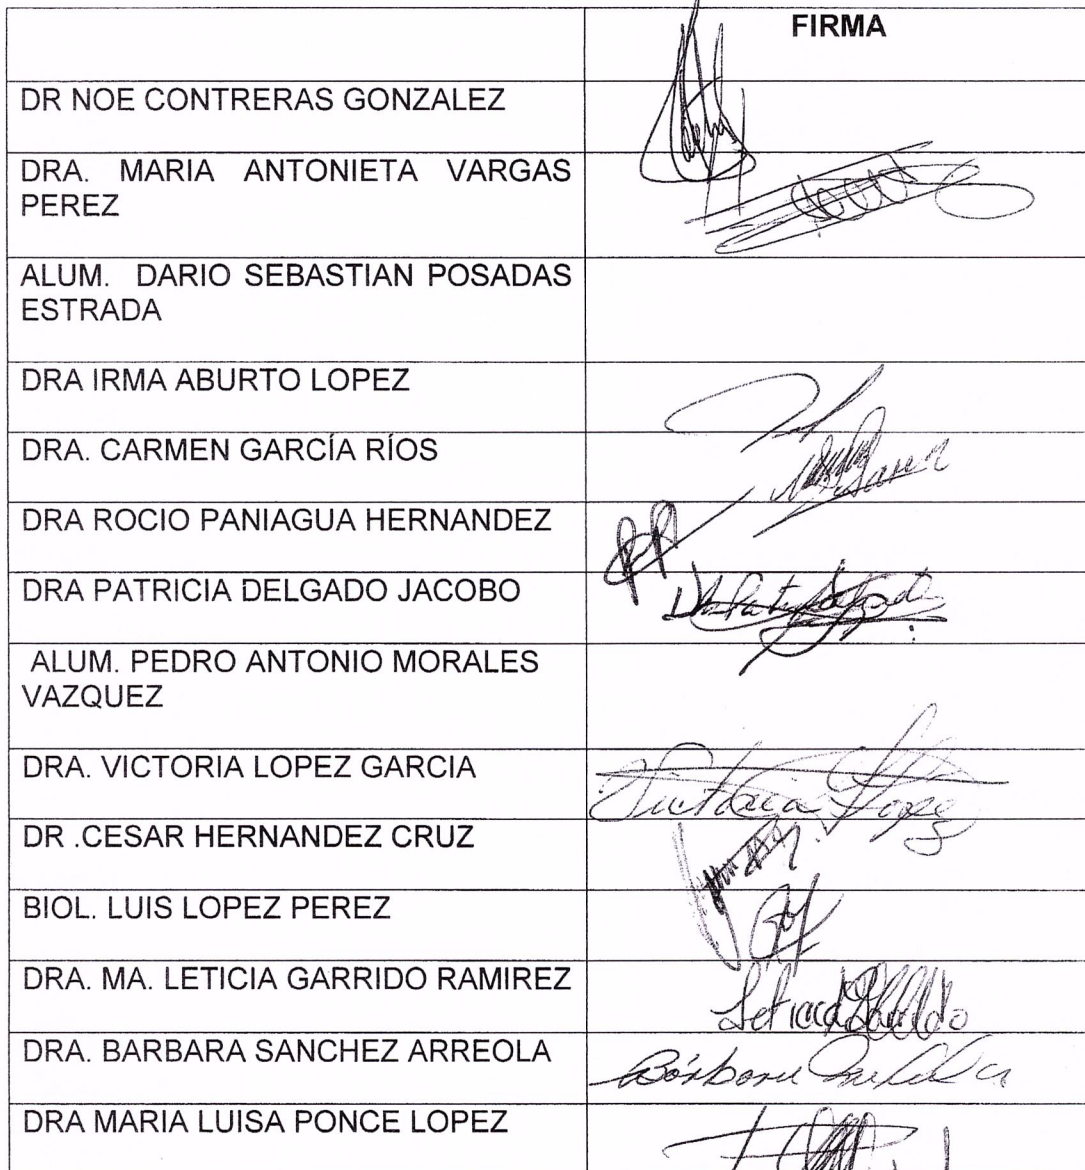 FIRMA
DR NOE CONTRERAS GONZALEZ
DRA. MARIA ANTONIETA VARGAS
PEREZ
ALUM. DARIO SEBASTIAN POSADAS
ESTRADA
DRA IRMA ABURTO LOPEZ
DRA. CARMEN GARCÍA RÍOS
DRA ROCIO PANIAGUA HERNANDEZ
DRA PATRICIA DELGADO JACOBO
ALUM. PEDRO ANTONIO MORALES
VAZQUEZ
DRA. VICTORIA LOPEZ GARCIA
Victoria Lopez
DR .CESAR HERNANDEZ CRUZ
BIOL. LUIS LOPEZ PEREZ
DRA. MA. LETICIA GARRIDO RAMIREZ
Leticia
DRA. BARBARA SANCHEZ ARREOLA
Bárbara
DRA MARIA LUISA PONCE LOPEZ